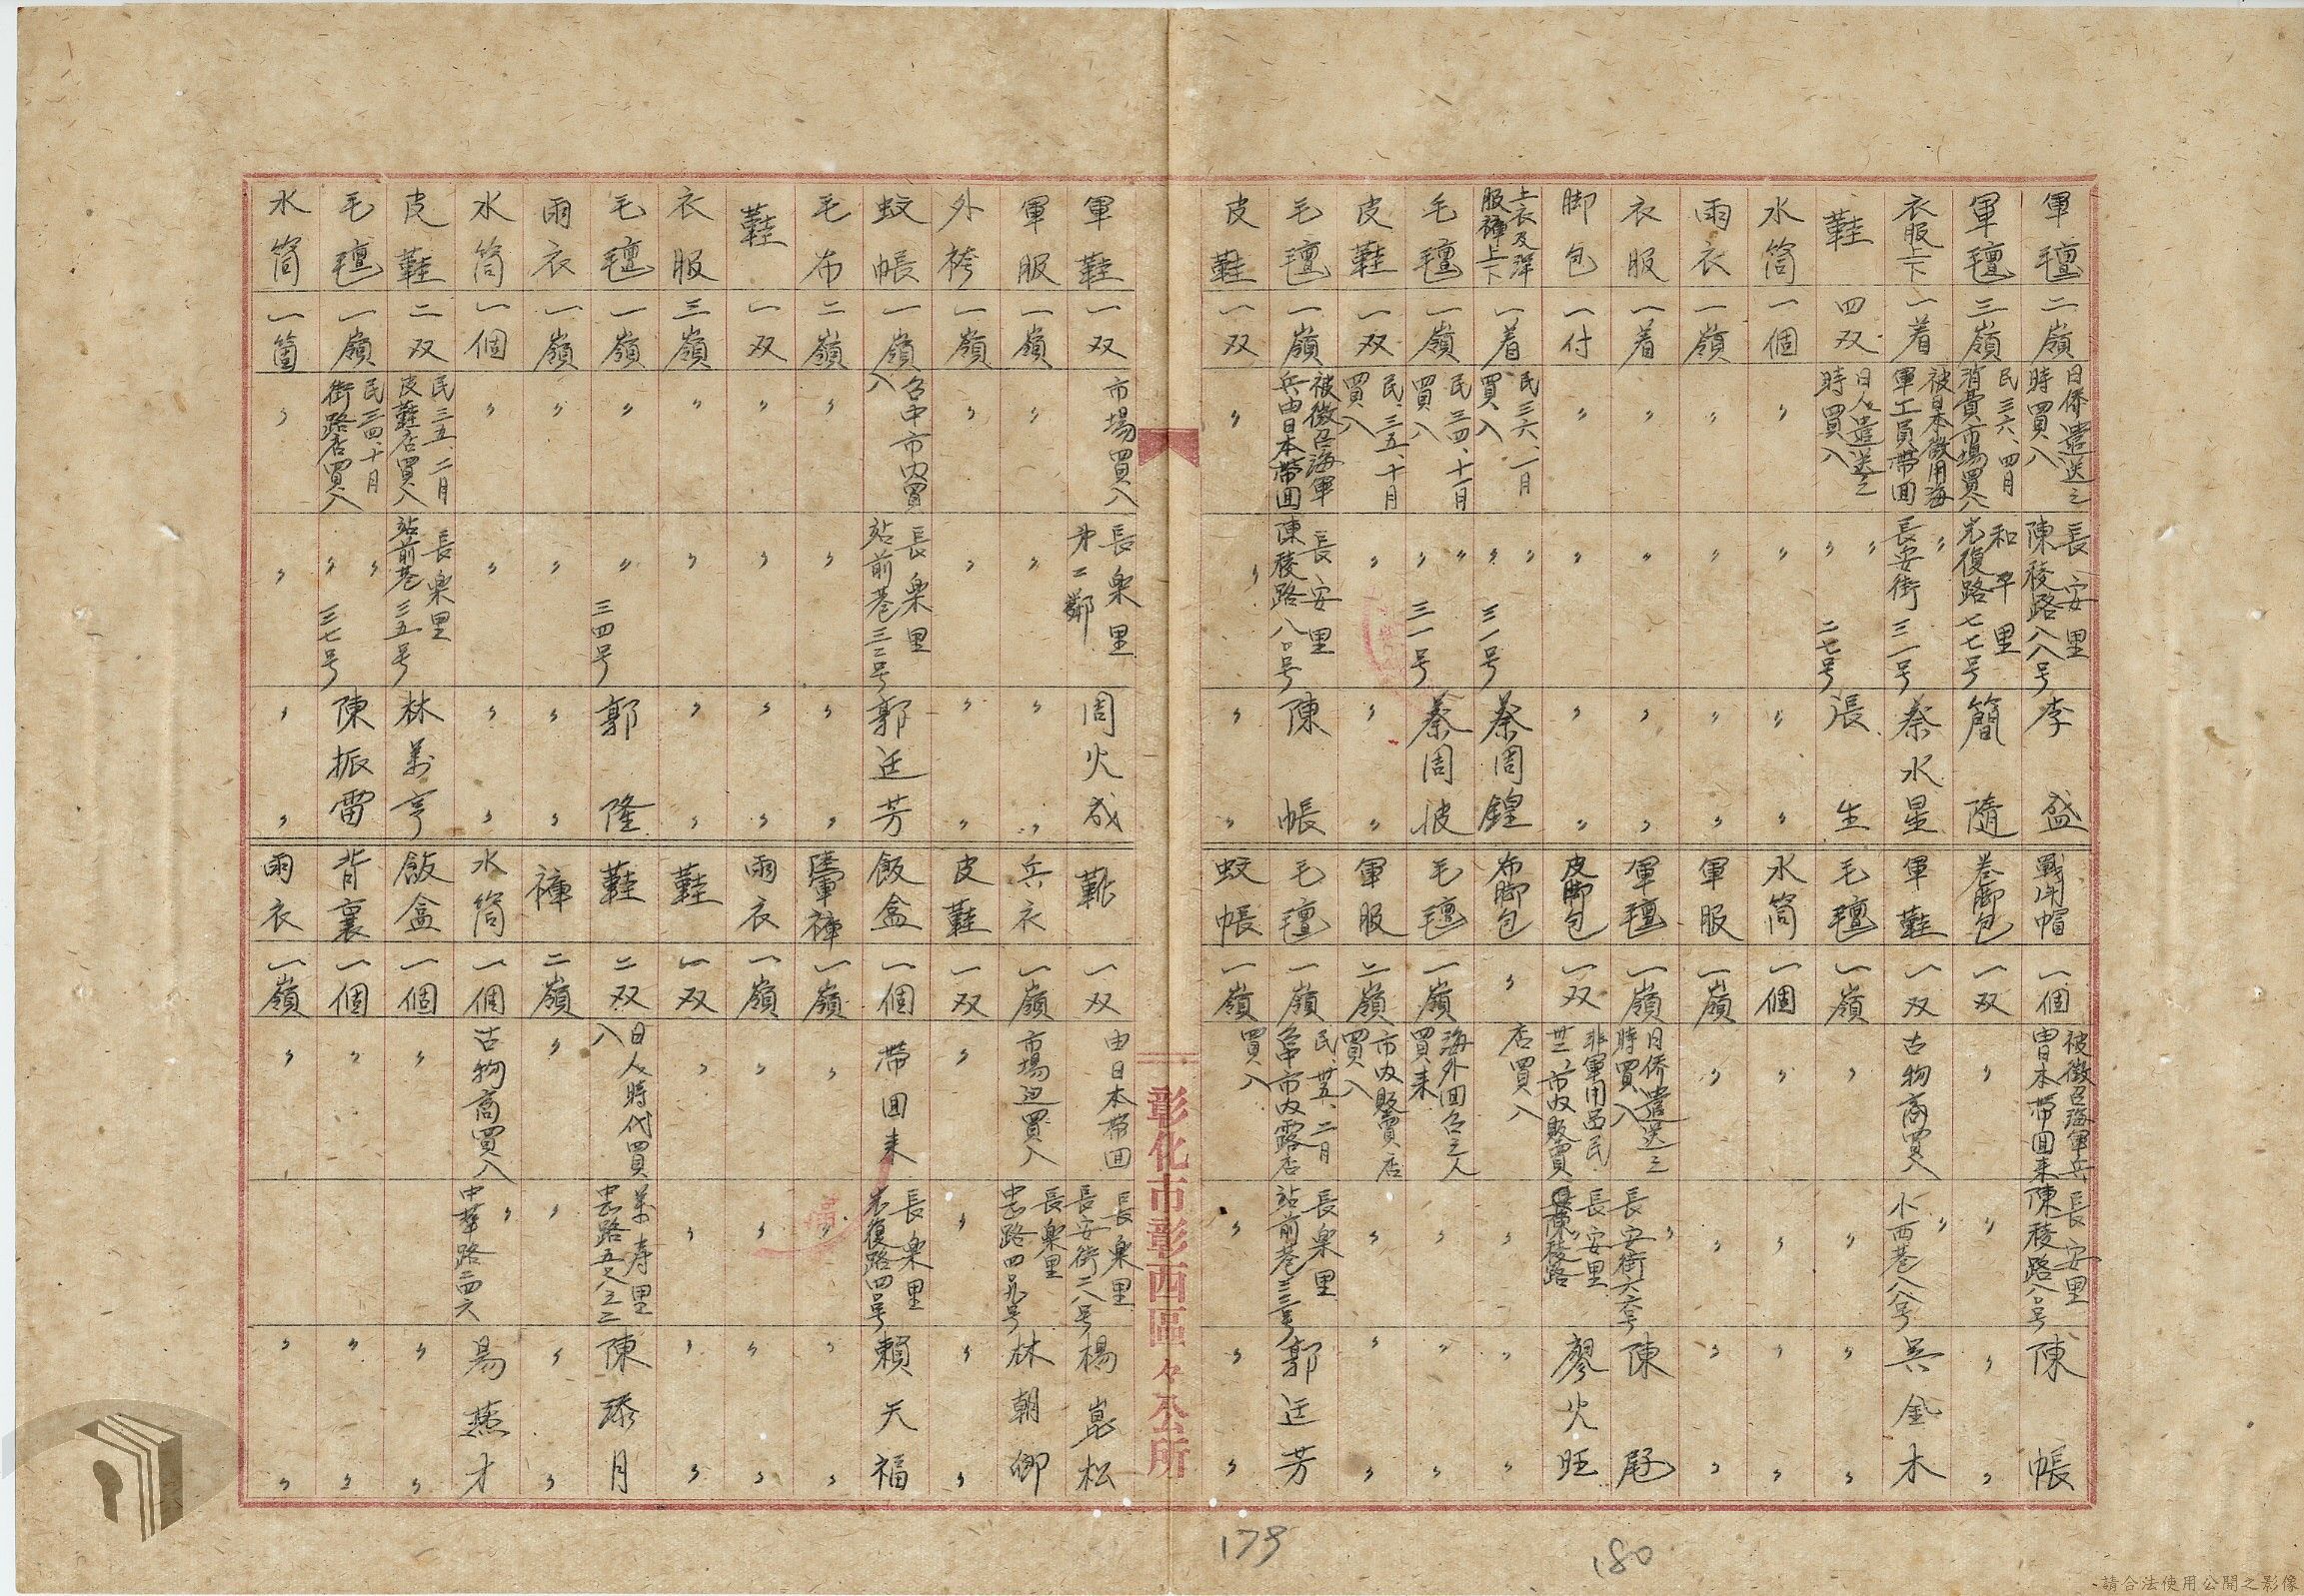 軍氊 二嶺 日僑遣送之時買入 長安里陳稜路八八号 李盛
軍氊 三嶺 民三六、四月消費市場買入 和平里光復路七七号 簡隨
衣服上下 一着 被日本徴用海軍工員帯回 〃長安街三一号 蔡水星
鞋 四双 日人遣送之時買入 〃〃二七号 張生
水筒 一個 〃 〃 〃〃
雨衣 一嶺 〃 〃 〃〃
衣服 一着 〃 〃 〃〃
脚包 一付 〃 〃 〃〃
上衣及洋服褲上下 一着 民三六、一月買入 〃〃三一号 蔡周鍠
毛氊 一嶺 民三四、十一月買入 〃〃三一号 蔡周波
皮鞋 一双 民、三五、十月買入 〃 〃〃
毛氊 一嶺 被徴召海軍兵由日本帯回 長安里陳稜路八〇号 陳帳
皮鞋 一双 〃 〃 〃〃
戰斗帽 一個 被徴召海軍兵由日本帯回来 長安里陳稜路八〇号 陳帳
巻脚包 一双 〃 〃 〃〃
軍鞋 一双 古物商買入 〃小西巷八八号 吳金木
毛氊 一嶺 〃 〃 〃〃
水筒 一個 〃 〃 〃〃
軍服 一嶺 〃 〃 〃〃
軍氊 一嶺 日僑遣送之時買入 〃長安街六六号 陳尾
皮脚包 一双 非軍用品民卅三、市内販賣店買入 長安里陳稜路 廖火旺
布脚包 〃 〃〃
毛氊 一嶺 海外回台之人買来 〃 〃〃
軍服 二嶺 市内販賣店買入 〃 〃〃
毛氊 一嶺 民、卅五、二月台中市内露店買入 長樂里站前巷三三号 郭廷芳
蚊帳 一嶺 〃 〃〃
彰化市彰西區々公所
軍鞋 一双 市場買入 長樂里第二鄰 周火成
軍服 一嶺 〃 〃 〃〃
外袴 一嶺 〃 〃 〃〃
蚊帳 一嶺 台中市内買入 長樂里站前巷三三号 郭廷芳
毛布 二嶺 〃 〃 〃〃
鞋 一双 〃 〃 〃〃
衣服 三嶺 〃 〃 〃〃
毛氊 一嶺 〃 〃三四号 郭隆
雨衣 一嶺 〃 〃 〃〃
水筒 一個 〃 〃 〃〃
皮鞋 二双 民三五、二月皮鞋店買入 長樂里站前巷三五号 林萬亨
毛氊 一嶺 民三四、十月街路店買入 〃〃三七号 陳振雷
水筒 一箇 〃 〃 〃〃
靴 一双 由日本帯回 長樂里長安街二八号 楊崑松
兵衣 一嶺 市場辺買入 長樂里忠路四九号 林朝卿
皮鞋 一双 〃 〃 〃〃
飯盒 一個 帯回来 長樂里光復路四号 賴天福
陸軍褲 一嶺 〃 〃 〃〃
雨衣 一嶺 〃 〃 〃〃
鞋 一双 〃 〃 〃〃
鞋 二双 日人時代買入 萬寿里忠路五之八之二 陳添月
褲 二嶺 〃 〃 〃〃
水筒 一個 古物商買入 〃中華路二四六 湯燕才
飯盒 一個 〃 〃〃
背裏 一個 〃 〃〃
雨衣 一嶺 〃 〃〃
179
180
請合法使用公開之影像